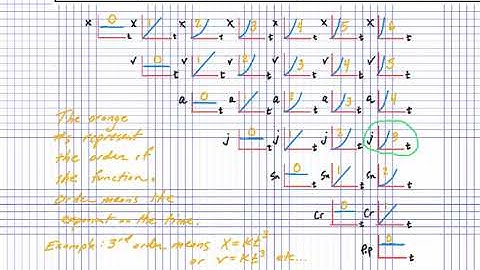 x 0 x 1 x 2 x 3 x 4 x 5 x 6
t t t t t t t
v 0 v 1 v 2 v 3 v 4 v 5
t t t t t t
a 0 a 1 a 2 a 3 a 4
t t t t t
j 0 j 1 j 2 j 3
t t t t
Sn 0 Sn 1 Sn 2
t t t
Cr 0 Cr 1
t t
Pop 0
t
The orange
#'s represent
the order of
the function.
Order means the
exponent on the time.
Example: 3rd order means x=kt³
or v=kt³ etc...